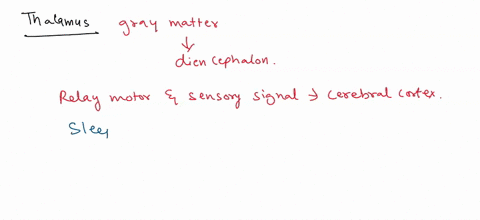 Thalamus gray matter
↓
diencephalon.
Relay motor & sensory signal → cerebral cortex.
Slee